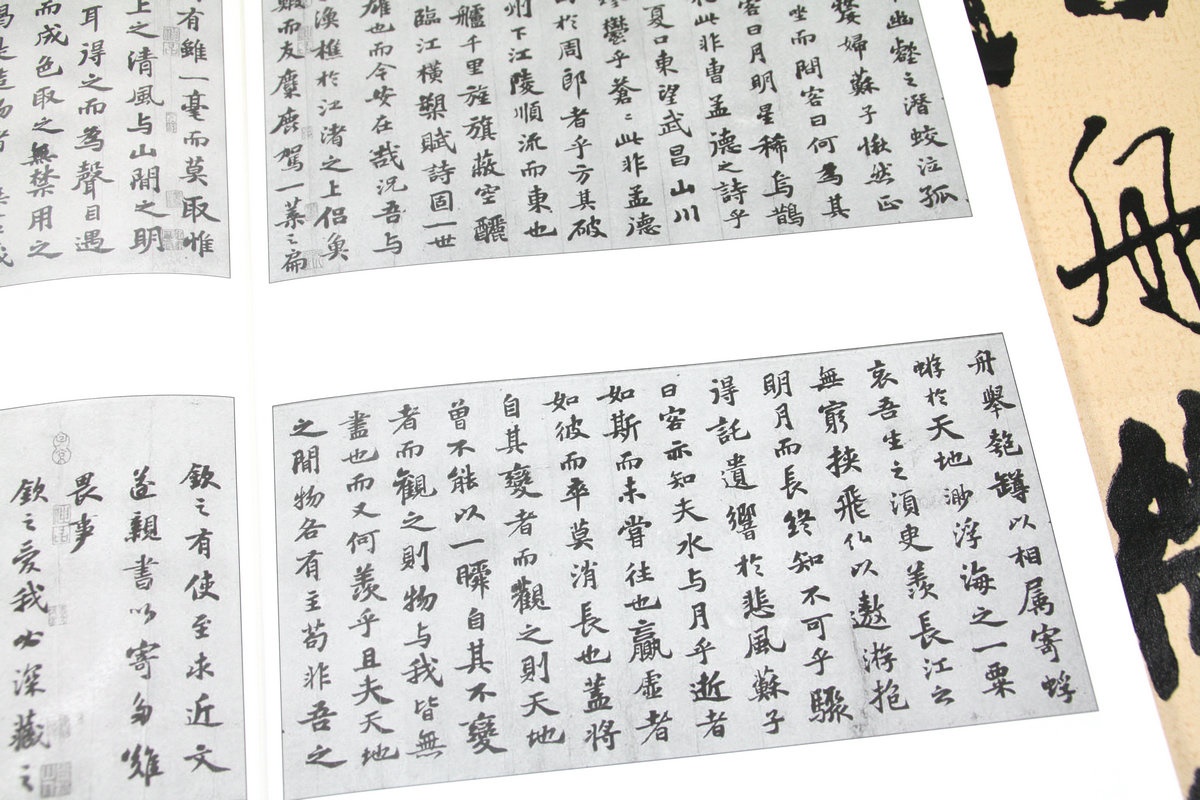 幽壑之潛蛟泣孤
嫠婦蘇子愀然正
坐而問客曰何為其
客曰月明星稀烏鵲
此非曹孟德之詩乎
夏口東望武昌山川
鬱乎蒼〻此非孟德
於周郎者乎方其破
州下江陵順流而東也
艫千里旌旗蔽空釃
臨江橫槊賦詩固一世
雄也而今安在哉況吾与
漁樵於江渚之上侶魚
蝦而友麋鹿駕一葉之扁
有雖一毫而莫取惟
上之清風与山間之明
耳得之而為聲目遇
而成色取之無禁用之
竭是造物者
舟舉匏罇以相属寄蜉
蝣於天地渺浮海之一粟
哀吾生之須臾羨長江之
無窮挾飛仙以遨游抱
明月而長終知不可乎驟
得託遺響於悲風蘇子
曰客亦知夫水与月乎逝者
如斯而未嘗往也贏虛者
如彼而卒莫消長也蓋將
自其變者而觀之則天地
曾不能以一瞬自其不變
者而觀之則物与我皆無
盡也而又何羨乎且夫天地
之間物各有主苟非吾之
欽之有使至求近文
遂親書以寄多難
畏事
欽之愛我必深藏之
舟